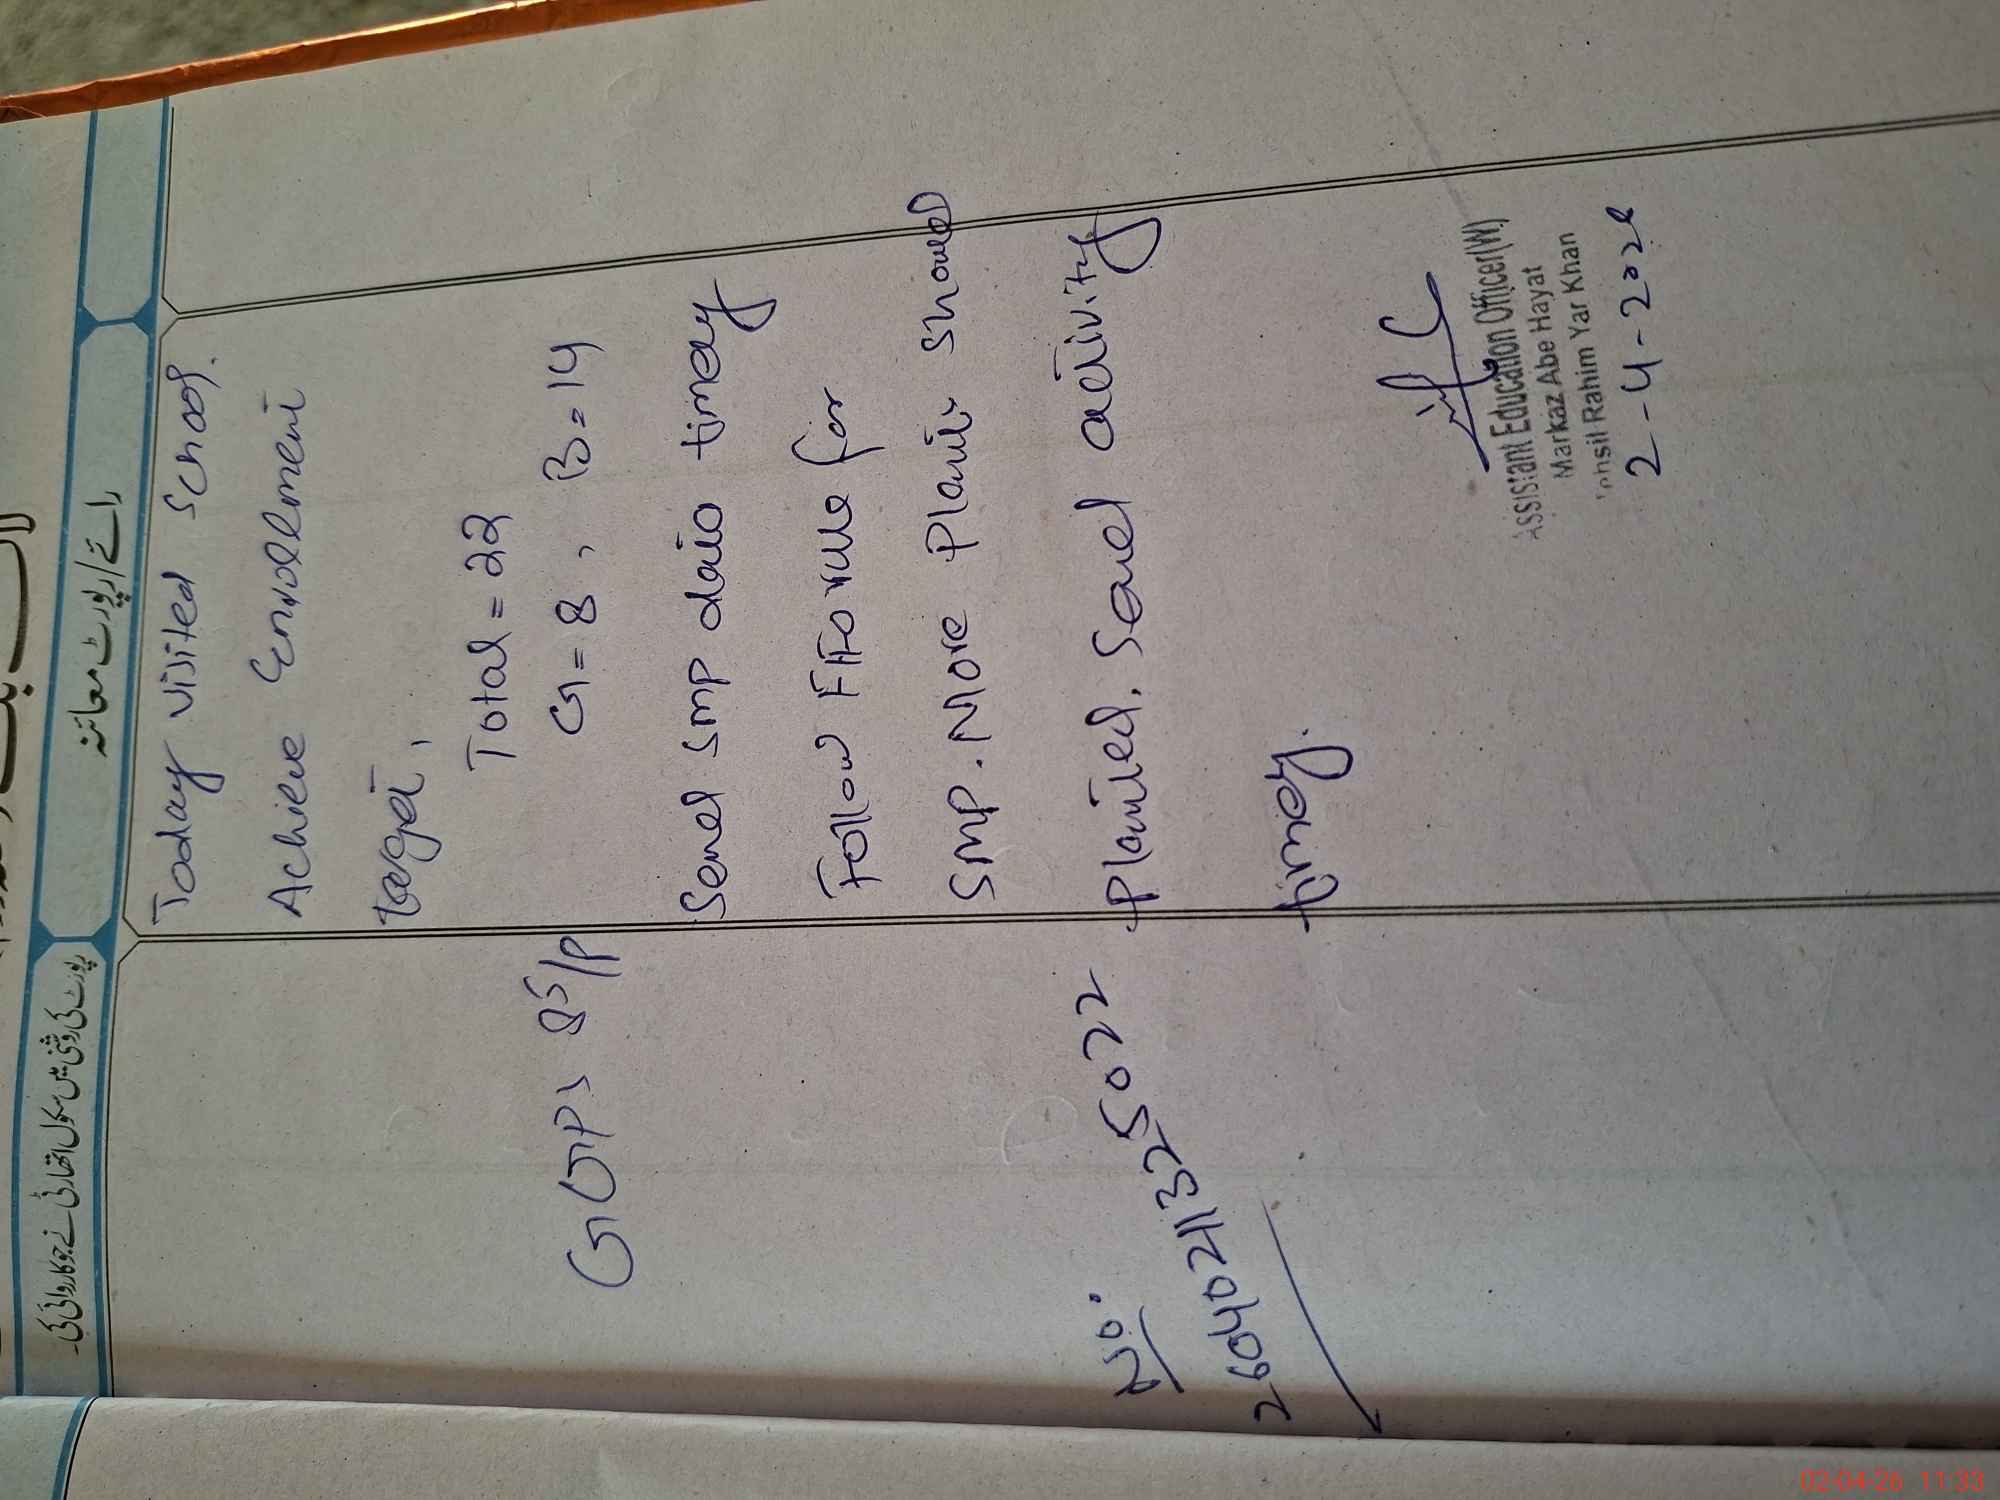 رائے/رپورٹ معائنہ
رپورٹ کی روشنی میں سکول اتھارٹی نے جو کاروائی کی۔
Today visited school.
Achieve Enrollment
target,
Total = 22
G = 8, B = 14
Send smp data timey
Follow Formule for
smp. More Plants showed
planted. Send activity
timey.
GGPS 85/P
No.
26040211325022
Assistant Education Officer(W)
Markaz Abe Hayat
Tehsil Rahim Yar Khan
2-4-2026
02-04-26 11:33